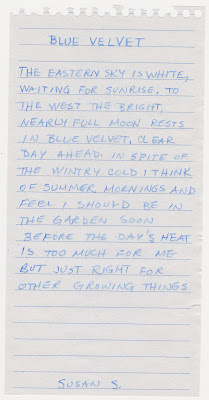 BLUE VELVET
THE EASTERN SKY IS WHITE,
WAITING FOR SUNRISE. TO
THE WEST THE BRIGHT,
NEARLY FULL MOON RESTS
IN BLUE VELVET. CLEAR
DAY AHEAD. IN SPITE OF
THE WINTRY COLD I THINK
OF SUMMER MORNINGS AND
FEEL I SHOULD BE IN
THE GARDEN SOON
BEFORE THE DAY'S HEAT
IS TOO MUCH FOR ME
BUT JUST RIGHT FOR
OTHER GROWING THINGS
SUSAN S.